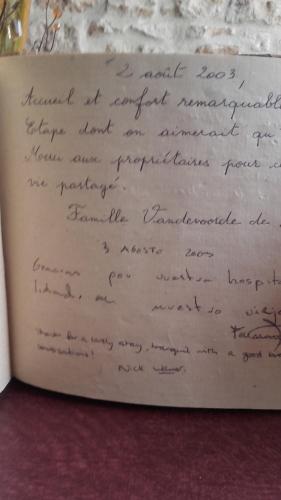 2 août 2003,
Accueil et confort remarquable
Etape dont on aimerait qu
Merci aux propriétaires pour c
vie partagé.
Famille Vandevoorde de
3 AGOSTO 2003
Gracias por vuestra hospita
lidad, en nuestro viaje
Thanks for a lovely stay, tranquil with a good
conversations!
Nick